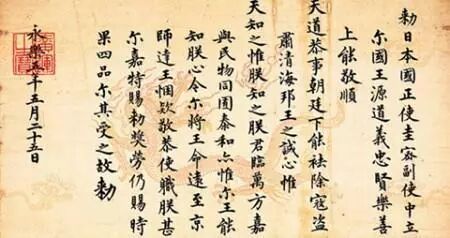 勅日本國正使圭密副使中立
尔國王源道義忠賢樂善
上能敬順
天道恭事朝廷下能祛除寇盜
肅清海邦王之誠心惟
天知之惟朕知之朕君臨萬方嘉
與民物同囿泰和亦惟尔王能
知朕心今尔將王命遠至京
師達王悃欵敬恭使職朕甚
尔嘉特賜勅奬勞仍賜時
果四品尔其受之故勅
永樂五年五月二十五日